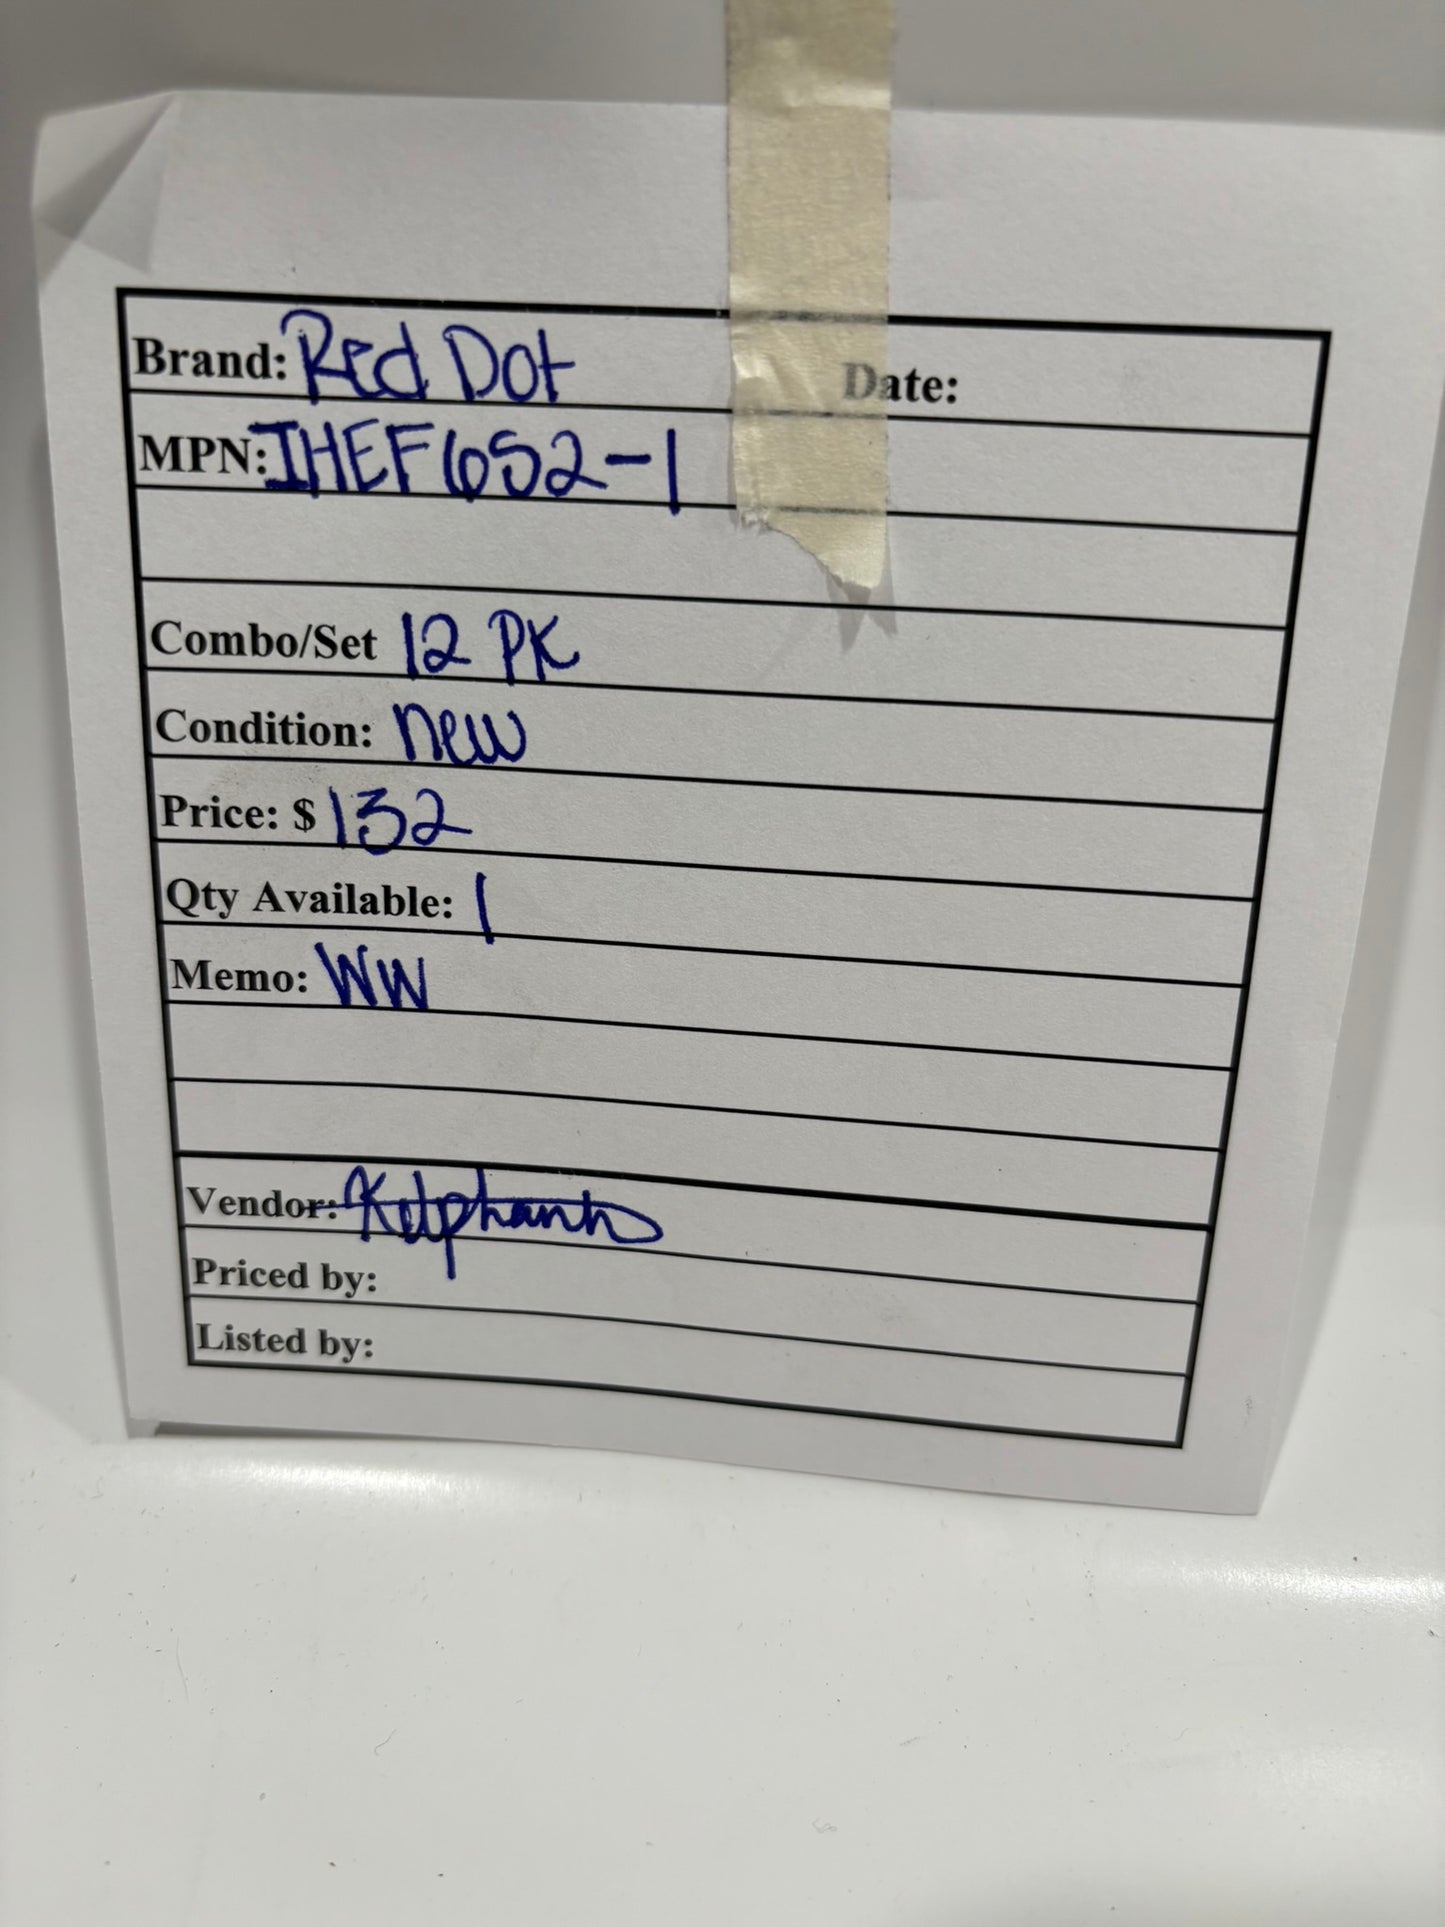 Brand: Red Dot Date:
MPN: IHEF652-1
Combo/Set 12 PK
Condition: new
Price: $ 132
Qty Available: 1
Memo: WW
Vendor:
Priced by:
Listed by: